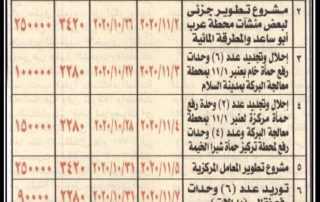 ٢ مشروع تطوير جزئى
لبعض منشآت محطة عرب
أبو ساعد والمطرقة المائية
٢٠٢٠/١١/٢ ٢٠٢٠/١٠/٢٦ ٣٤٢٠ ٢٥٠٠٠٠
٣ إحلال وتجديد عدد (٦) وحدات
رفع حمأة خام بعنبر ١١/١ بمحطة
معالجة البركة بمدينة السلام
٢٠٢٠/١١/٣ ٢٠٢٠/١٠/٢٧ ٢٢٨٠ ١٠٠٠٠٠
٤ إحلال وتجديد عدد (٢) وحدة رفع
حمأة مركزة لعنبر ١١/١ بمحطة
معالجة البركة وعدد (٤) وحدات
رفع لمحطة تركيز حمأة شبرا الخيمة
٢٠٢٠/١١/٤ ٢٠٢٠/١٠/٢٨ ٢٢٨٠ ١٥٠٠٠٠
٥ مشروع تطوير المعامل المركزية
٢٠٢٠/١١/٥ ٢٠٢٠/١٠/٣١ ٣٤٢٠ ٢٥٠٠٠٠
٦ توريد عدد (٦) وحدات
٢٠٢٠/١١/٧ ٢٠٢٠/١٠/٣١ ٢٢٨٠ ٩٠٠٠٠